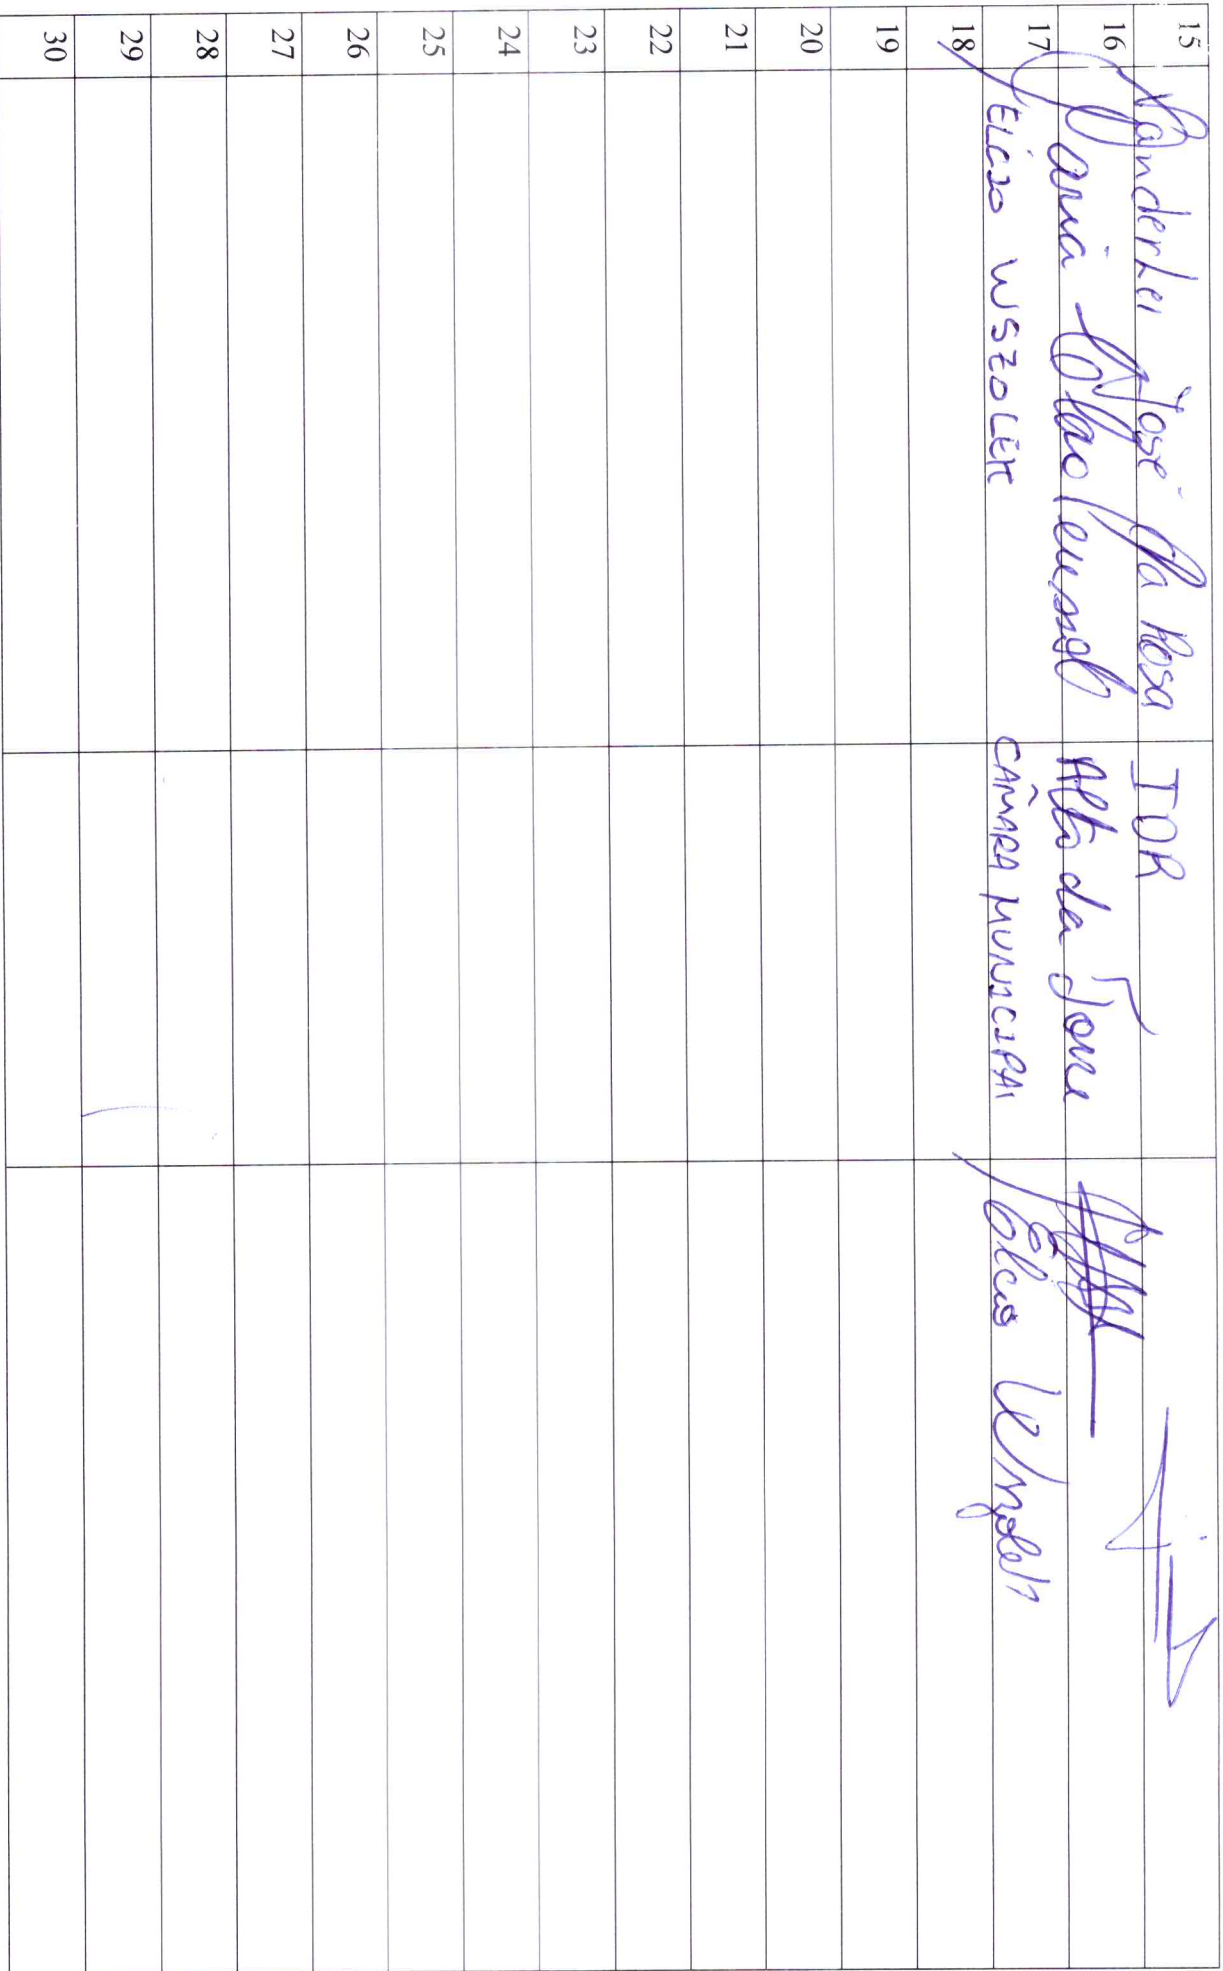 15 Vanderlei José da Rosa IOR
16 Maria Alto da Torre
17 ELCIO WSZOLEK CÂMARA MUNICIPAL Elcio Wszolek
18
19
20
21
22
23
24
25
26
27
28
29
30